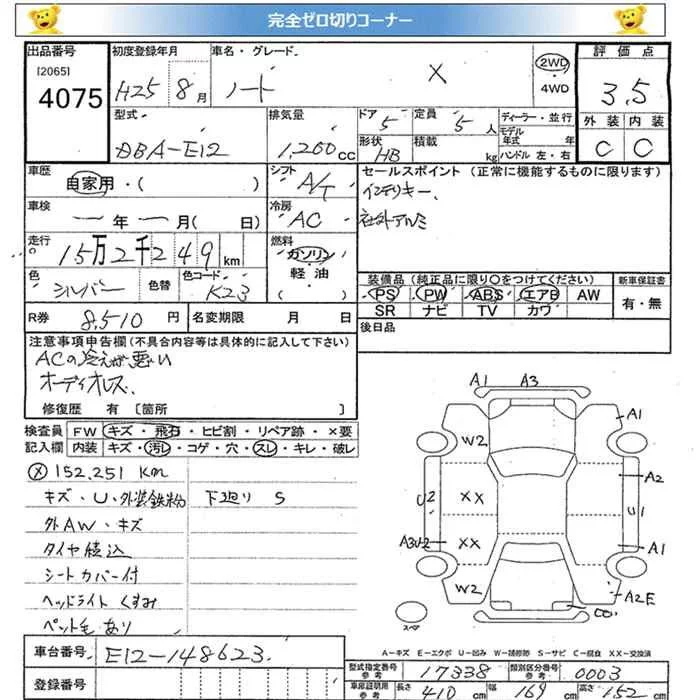 完全ゼロ切りコーナー
出品番号 初度登録年月 車名・グレード 2WD ・ 4WD 評価点
[2065]
4075 H25 8月 ノート X 3.5
型式 排気量 ドア 定員 ディーラー・並行 外装 内装
DBA-E12 1,200cc 5 5人 モデル年式 年 C C
形状 積載 ハンドル 左・右
HB kg
車歴 シフト セールスポイント (正常に機能するものに限ります)
自家用・( ) A/T インテリキー、
車検 冷房 社外アルミ
ー年ー月( 日) AC
走行 燃料
15万2千249km ガソリン 軽油 ( )
色 色替 色コード 装備品(純正品に限り○をつけてください) 新車保証書
シルバー K23 PS PW ABS エアB AW 有・無
SR ナビ TV カワ
R券 8,510円 名変期限 月 日 後日品
注意事項申告欄(不具合内容等は具体的に記入して下さい)
ACの冷えが悪い
オーディオレス、
修復歴 有 [箇所 ]
検査員記入欄 FW キズ・飛石・ヒビ割・リペア跡・×要
内装 キズ・汚レ・コゲ・穴・スレ・キレ・破レ
X 152,251 Km
キズ・U・外装鉄粉 下廻り S
外AW・キズ
タイヤ積込
シートカバー付
ヘッドライトくすみ
ペット毛あり
A1 A3
A1
W2
A2
U2 XX U1
A3U2 XX A1
W2 A2E
スペア
A-キズ E-エクボ U-凹み W-補修跡 S-サビ C-腐食 XX-交換済
車台番号 E12-148623
登録番号
型式指定番号参考 17338 類別区分番号参考 0003
車庫証明用参考 長さ 410cm 幅 169cm 高さ 152cm